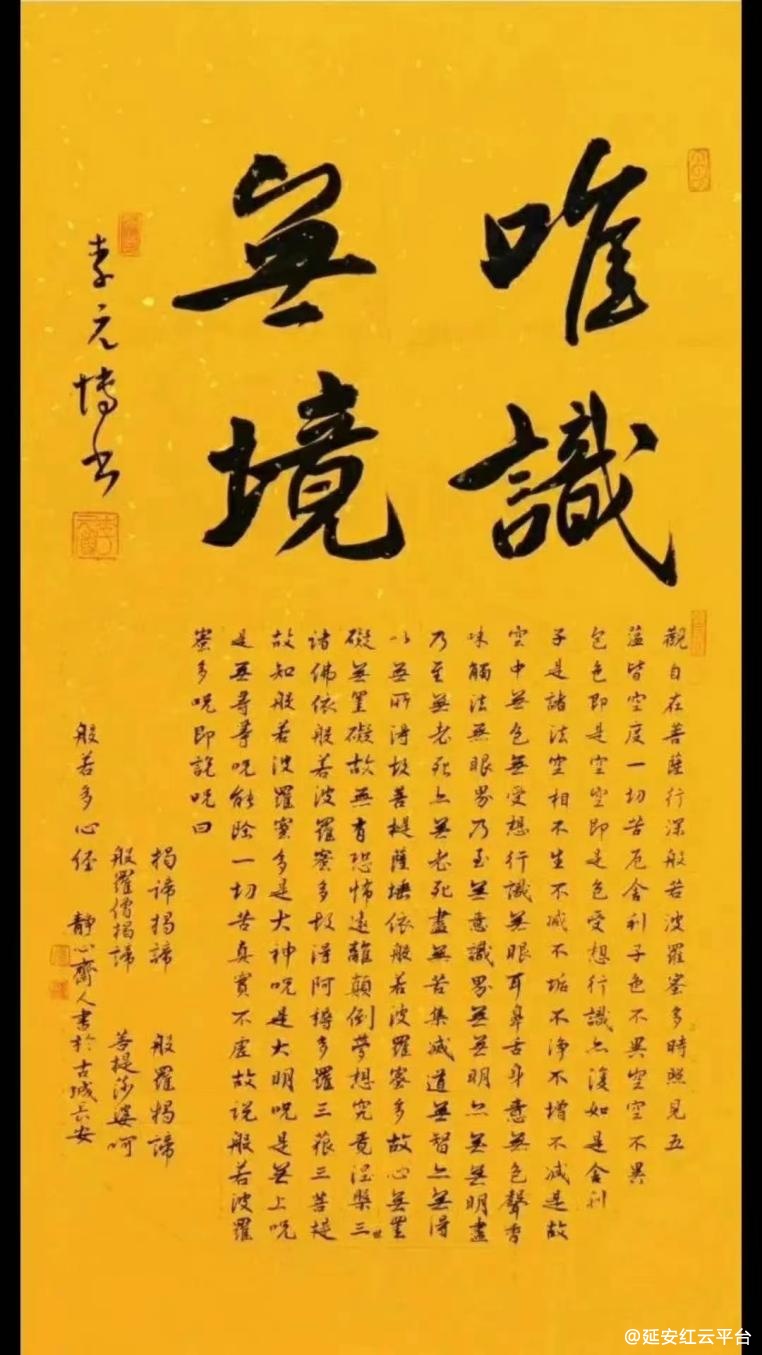 唯識
無境
李元博书
觀自在菩薩行深般若波羅蜜多時照見五
蕰皆空度一切苦厄舍利子色不異空空不異
色色即是空空即是色受想行識亦復如是舍利
子是諸法空相不生不滅不垢不淨不增不減是故
空中無色無受想行識無眼耳鼻舌身意無色聲香
味觸法無眼界乃至無意識界無無明亦無無明盡
乃至無老死亦無老死盡無苦集滅道無智亦無得
以無所得故菩提薩埵依般若波羅蜜多故心無罣
礙無罣礙故無有恐怖遠離顛倒夢想究竟涅槃三世
諸佛依般若波羅蜜多故得阿耨多羅三藐三菩提
故知般若波羅蜜多是大神呪是大明呪是無上呪
是無等等呪能除一切苦真實不虛故说般若波羅
蜜多呪即說呪曰
揭諦揭諦 般羅揭諦
般羅僧揭諦 菩提莎婆呵
般若多心经 靜心齋人書於古城長安
@延安红云平台